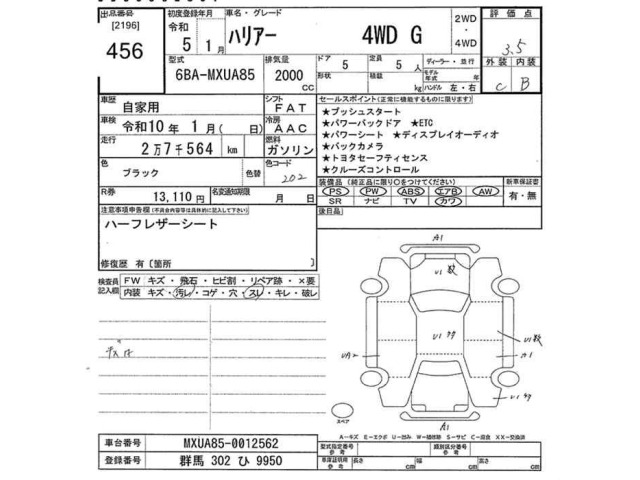 出品番号 初度登録年月 車名・グレード 2WD 評価点
[2196] 令和 ・
456 5 1月 ハリアー 4WD G 4WD 3.5
型式 排気量 ドア 5 定員 5人 ディーラー・並行 外装 内装
6BA-MXUA85 2000cc 形状 積載 kg モデル年式 年 ハンドル 左・右 C B
車歴 自家用 シフト FAT セールスポイント(正常に機能するものに限ります)
車検 令和10年 1月(日) 冷房 AAC ★プッシュスタート
★パワーバックドア ★ETC
走行 2万7千564 km 燃料 ガソリン ★パワーシート ★ディスプレイオーディオ
★バックカメラ
色 ブラック 色替 色コード 202 ★トヨタセーフティセンス
★クルーズコントロール
R券 13,110円 名変通知期限 月 日 装備品(純正品に限り○をつけてください) 新車保証書
PS PW ABS エアB AW 有・無
SR ナビ TV カワ
注意事項申告欄(不具合内容等は具体的に記入して下さい) 後日品
ハーフレザーシート
修復歴 有〔箇所 〕
検査員記入欄 FW キズ・飛石・ヒビ割・リペア跡・×要
内装 キズ・汚レ・コゲ・穴・スレ・キレ・破レ
A1
U1 数
U1
U1 数
UA2
A1
U1
A1
スペア
A-キズ E-エクボ U-凹み W-補修跡 S-サビ C-腐食 XX-交換済
車台番号 MXUA85-0012562 型式指定番号 参考 類別区分番号 参考
登録番号 群馬 302 ひ 9950 車庫証明用 参考 長さ cm 幅 cm 高さ cm